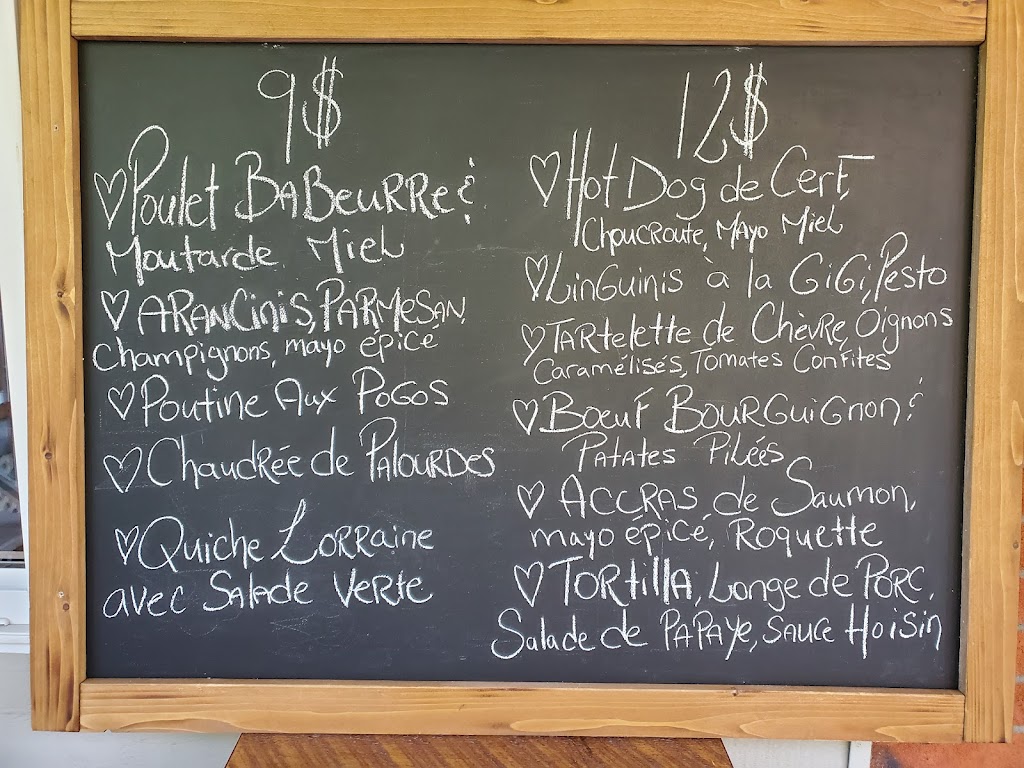 9$
Poulet Babeurre &
Moutarde Miel
Arancinis, Parmesan,
champignons, mayo épicé
Poutine Aux Pogos
Chaudrée de Palourdes
Quiche Lorraine
avec Salade Verte
12$
Hot Dog de Cerf,
Choucroute, Mayo Miel
Linguinis à la GiGi, Pesto
Tartelette de Chèvre, Oignons
Caramélisés, Tomates Confites
Boeuf Bourguignon &
Patates Pilées
Accras de Saumon,
mayo épicé, Roquette
Tortilla, Longe de Porc,
Salade de Papaye, Sauce Hoisin